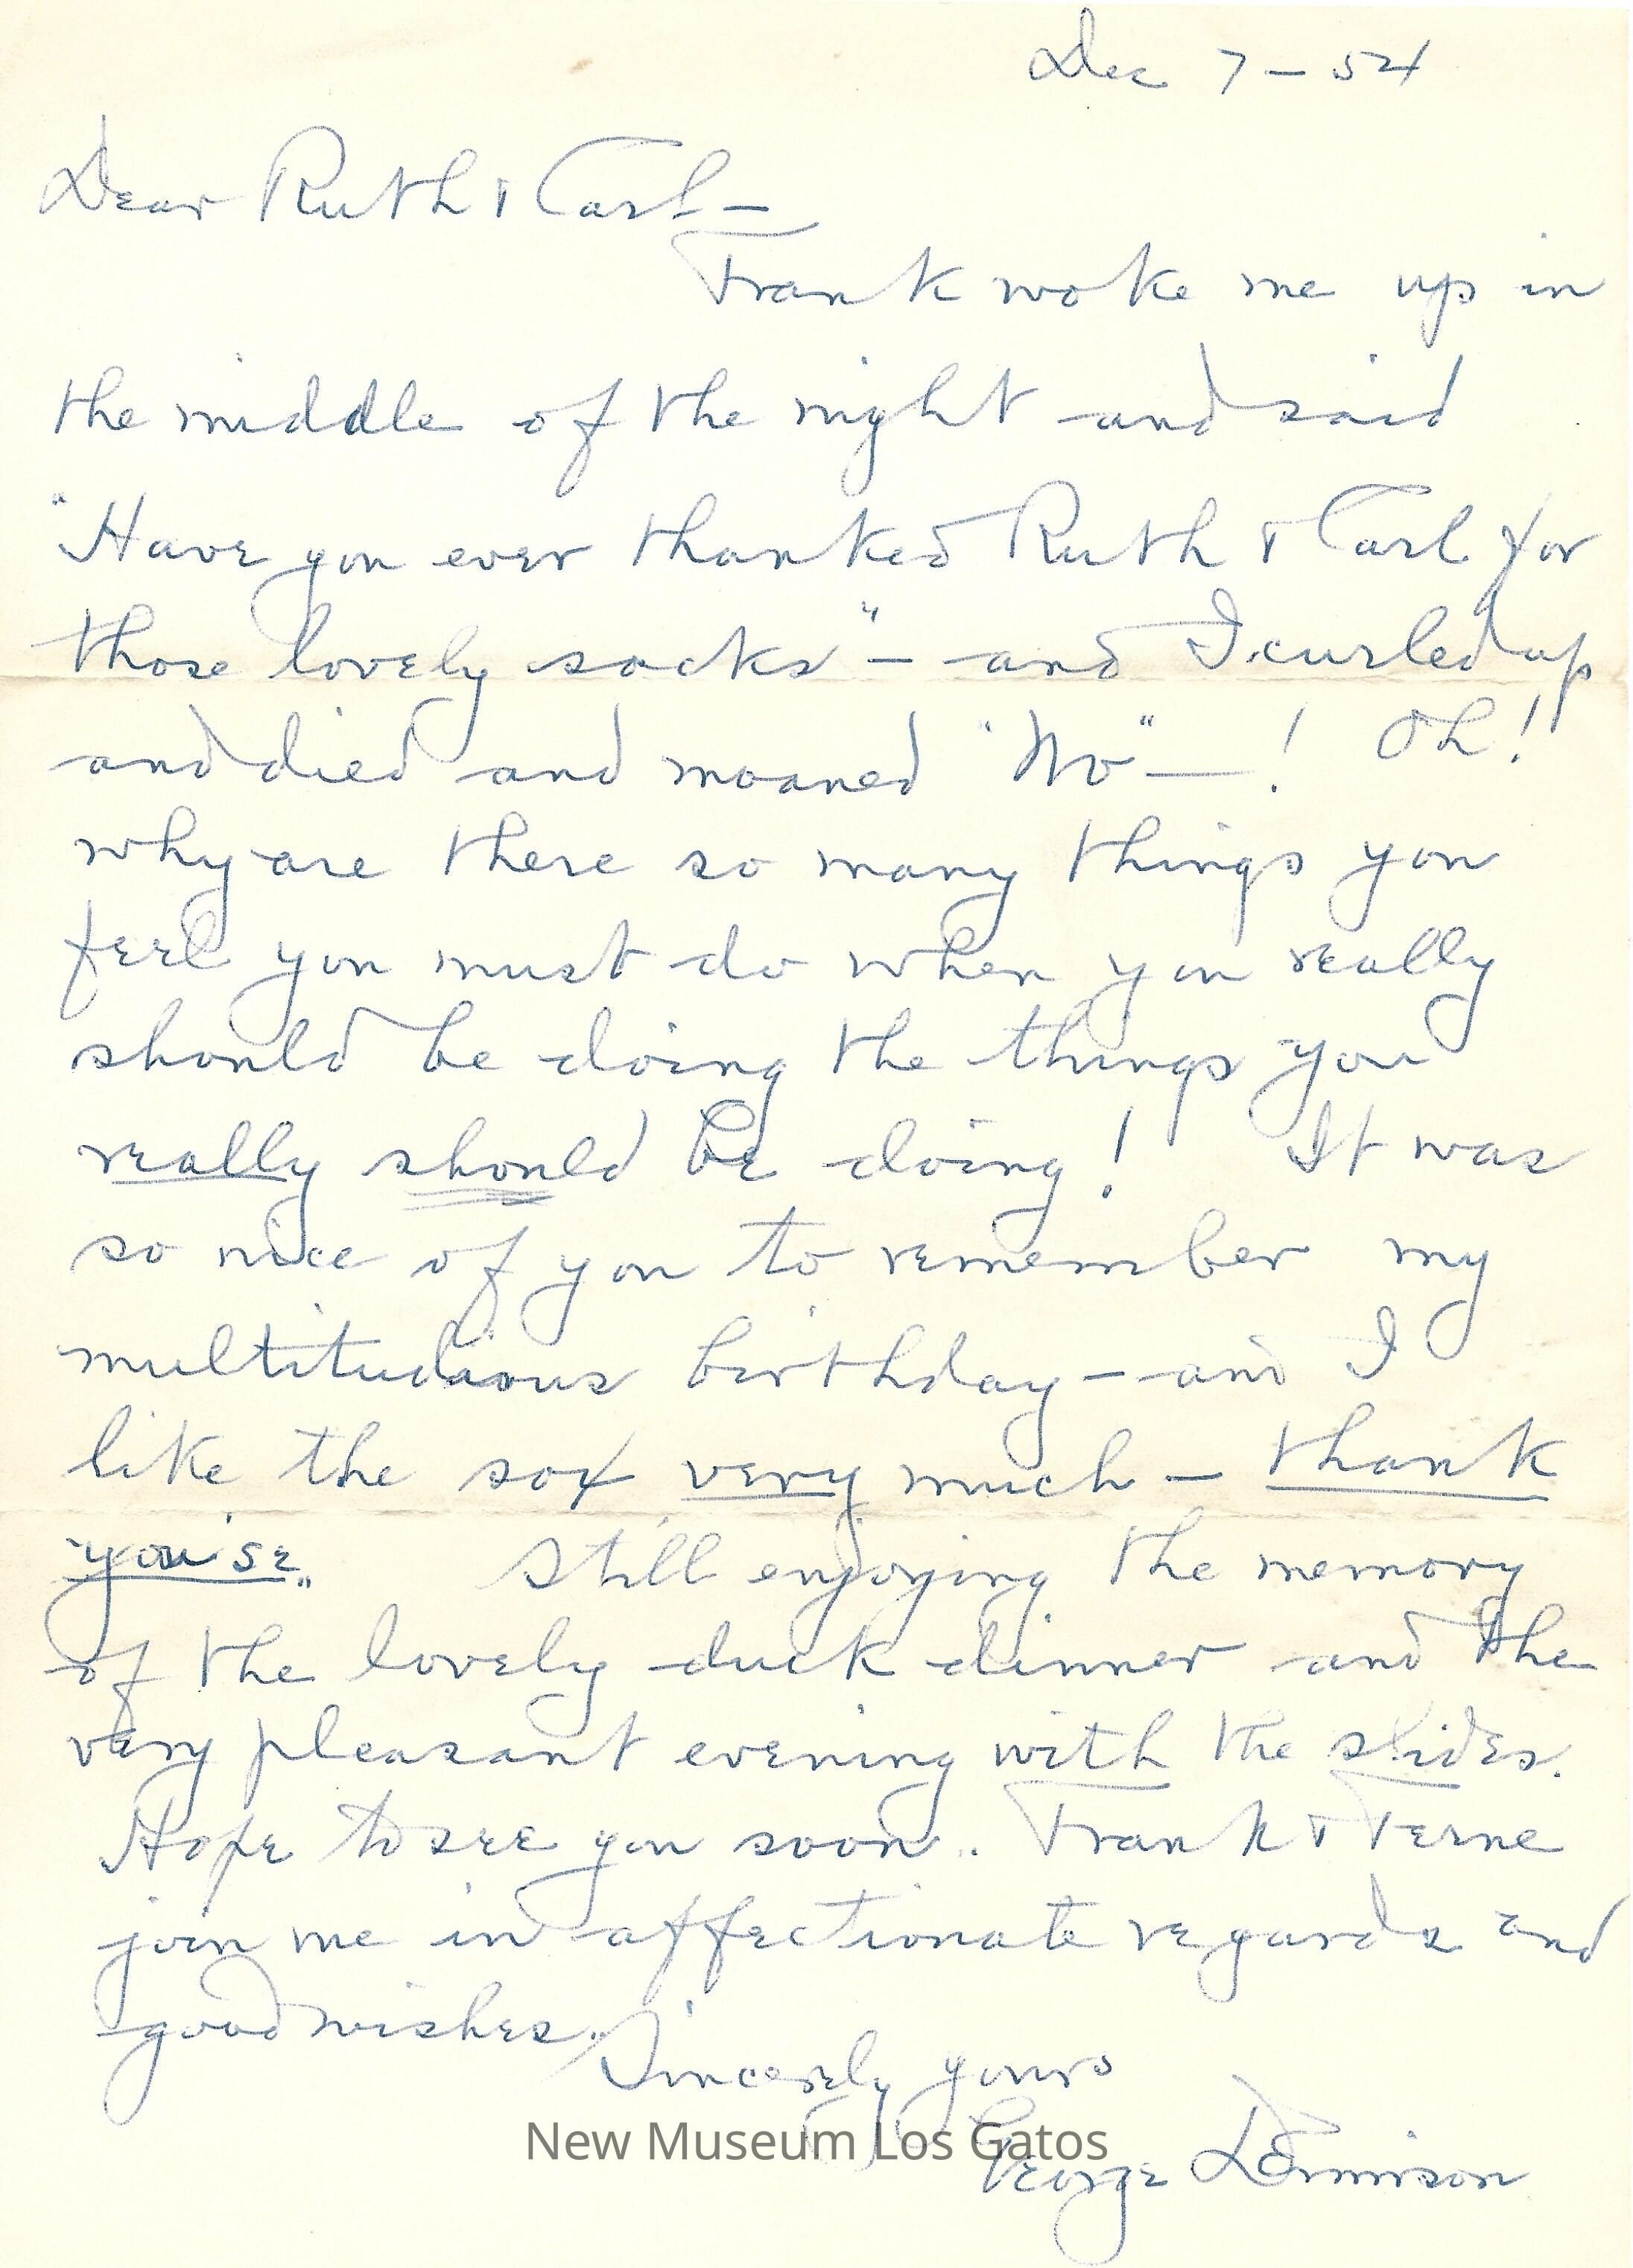 Dec 7 - 54
Dear Ruth & Carl -
Frank woke me up in
the middle of the night and said
"Have you ever thanked Ruth & Carl for
those lovely socks" - and I curled up
and died and moaned "No" - ! Oh!
why are there so many things you
feel you must do when you really
should be doing the things you
really should be doing! It was
so nice of you to remember my
multitudinous birthday - and I
like the sox very much - thank
you'se. Still enjoying the memory
of the lovely duck dinner and the
very pleasant evening with the slides.
Hope to see you soon. Frank & Ferne
join me in affectionate regards and
good wishes.
Sincerely yours
George Dennison
New Museum Los Gatos